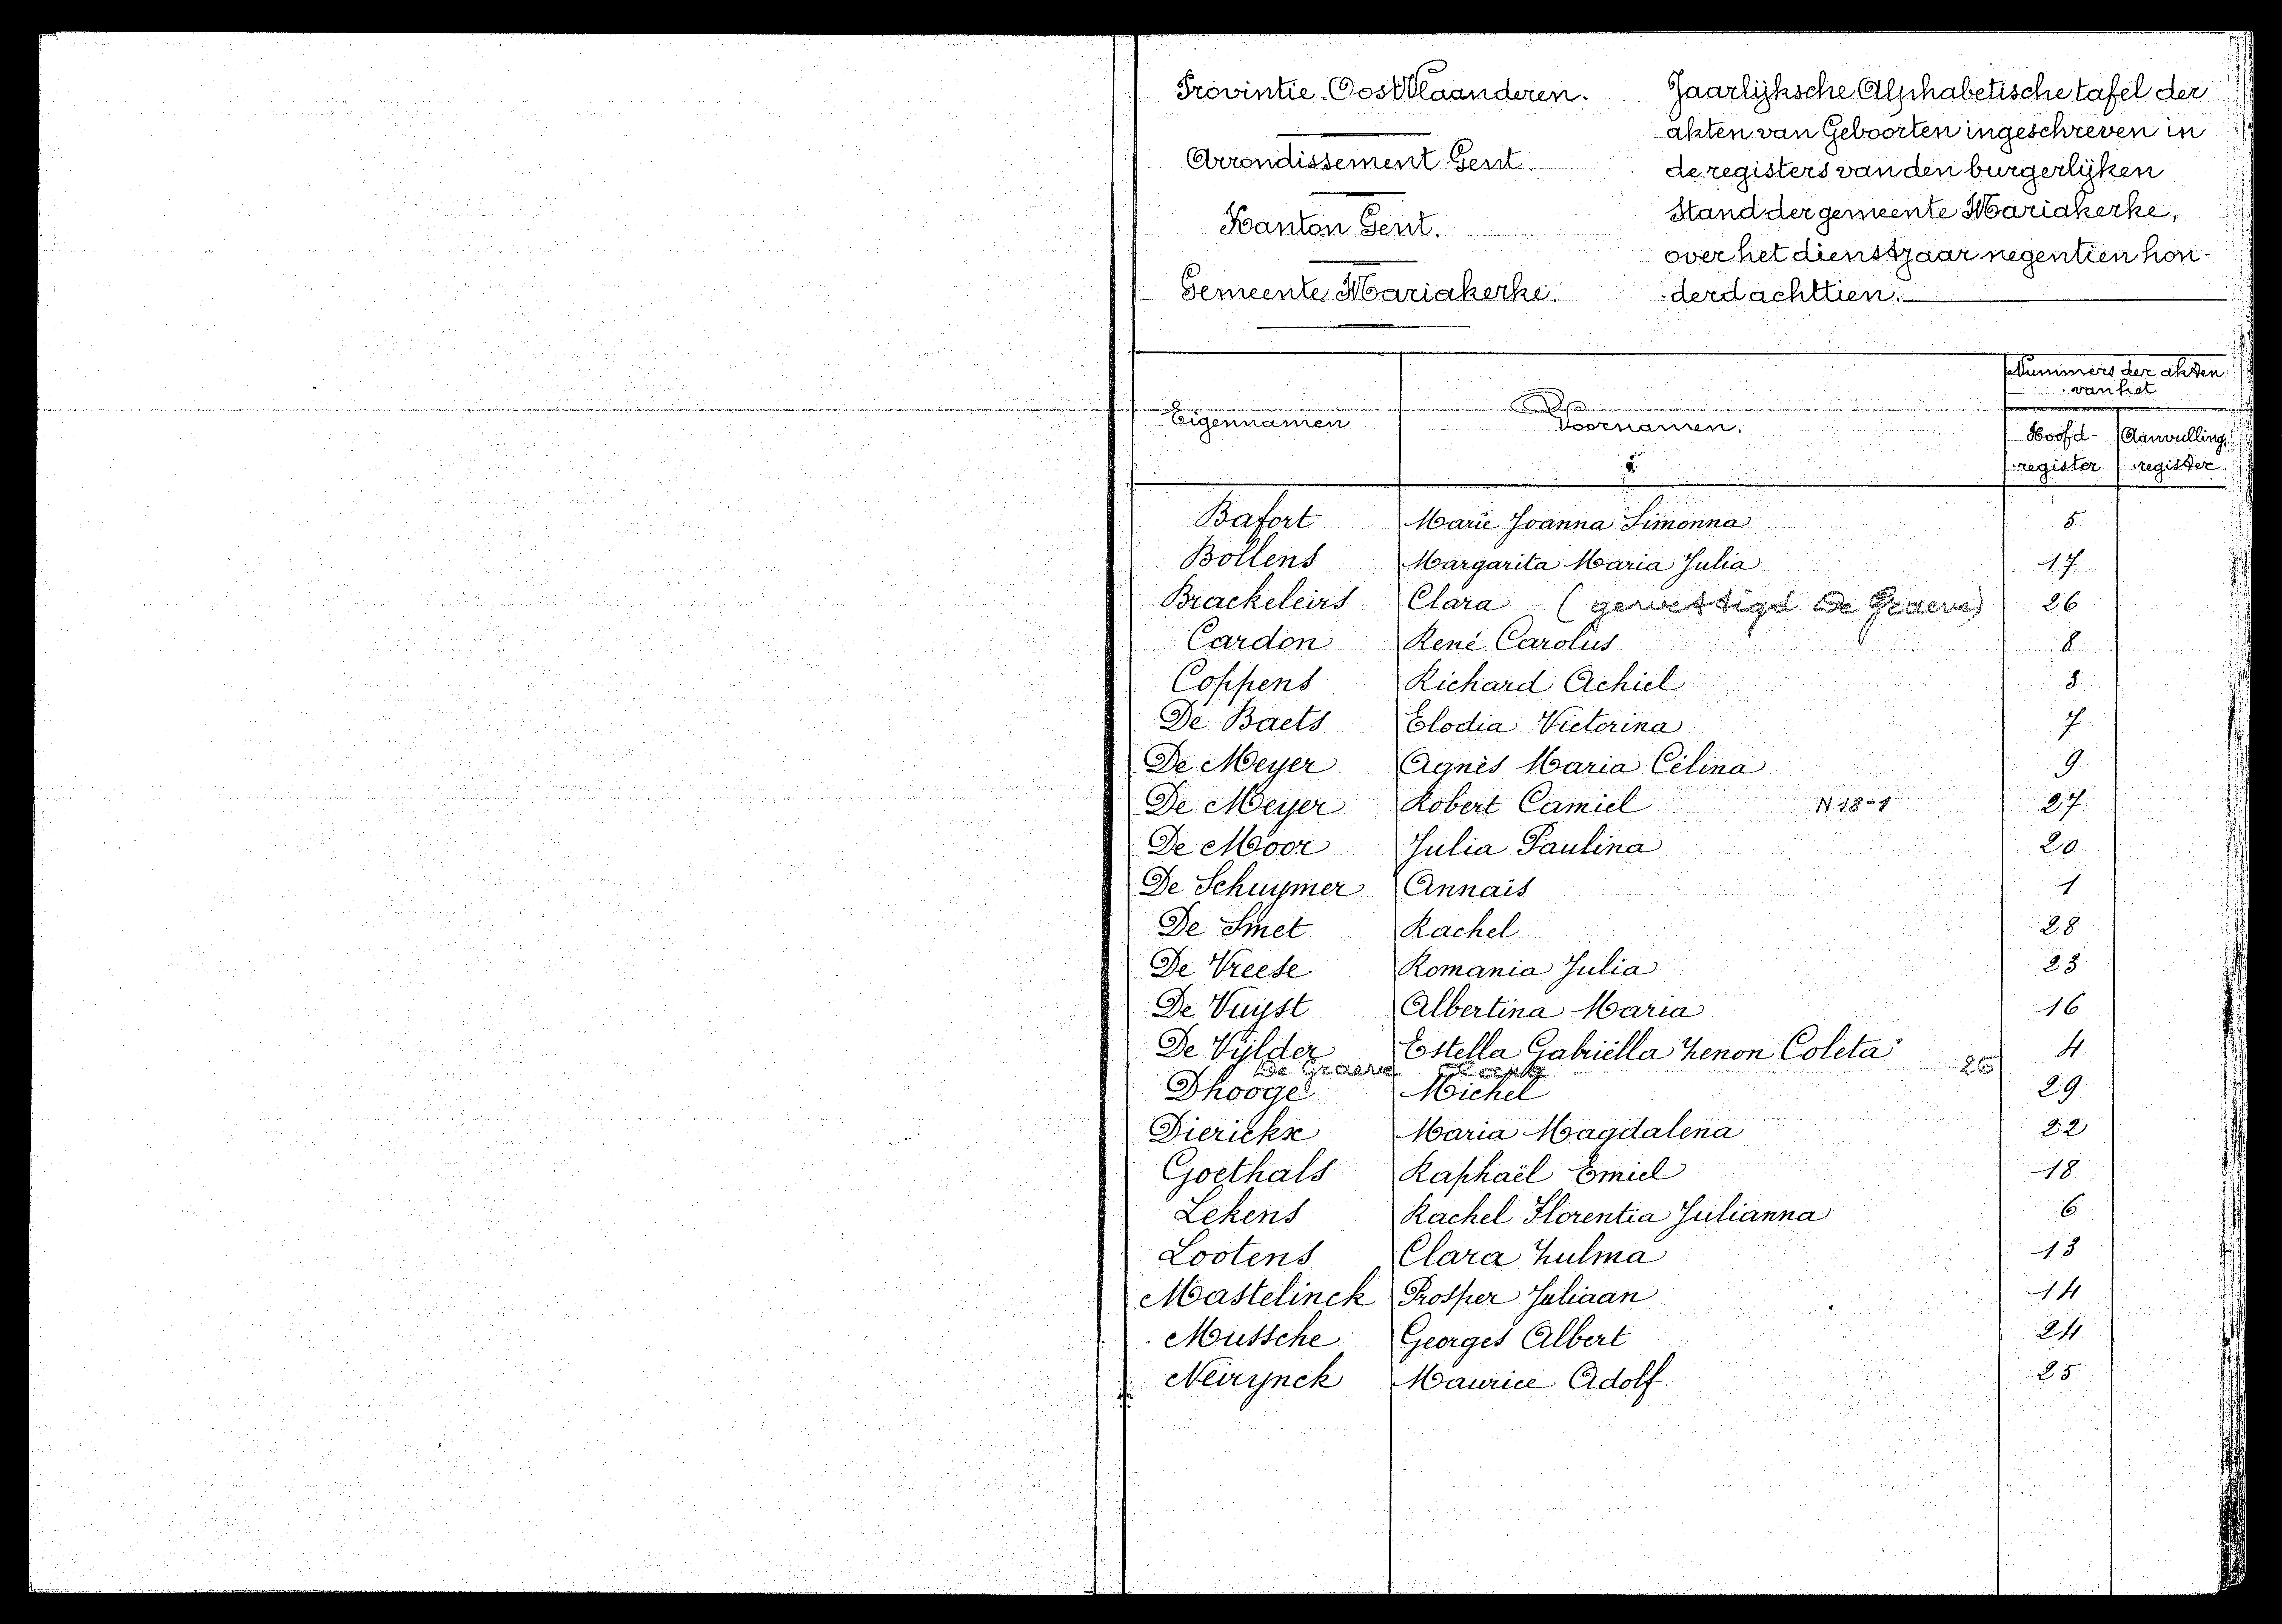 Provintie Oost Vlaanderen.
Arrondissement Gent.
Kanton Gent.
Gemeente Mariakerke.
Jaarlijksche Alphabetische tafel der
akten van Geboorten ingeschreven in
de registers van den burgerlijken
Stand der gemeente Mariakerke,
over het dienstjaar negentien hon-
derd achttien.
Eigennamen Voornamen. Nummers der akten
van het
Hoofd- Aanvullings
register register
Bafort Marie Joanna Simonna 5
Bollens Margarita Maria Julia 17
Brackeleirs Clara (gewettigd De Graeve) 26
Cardon René Carolus 8
Coppens Richard Achiel 3
De Baets Elodia Victorina 7
De Meyer Agnès Maria Célina 9
De Meyer Robert Camiel N 18-1 27
De Moor Julia Paulina 20
De Schuymer Annaïs 1
De Smet Rachel 28
De Vreese Romania Julia 23
De Vuyst Albertina Maria 16
De Vijlder Estella Gabriëlla Zenon Coleta 4
De Graeve Clara 26
Dhooge Michel 29
Dierickx Maria Magdalena 22
Goethals Raphaël Emiel 18
Lekens Rachel Florentia Julianna 6
Lootens Clara Zulma 13
Mastelinck Prosper Juliaan 14
Mussche Georges Albert 24
Neirynck Maurice Adolf. 25